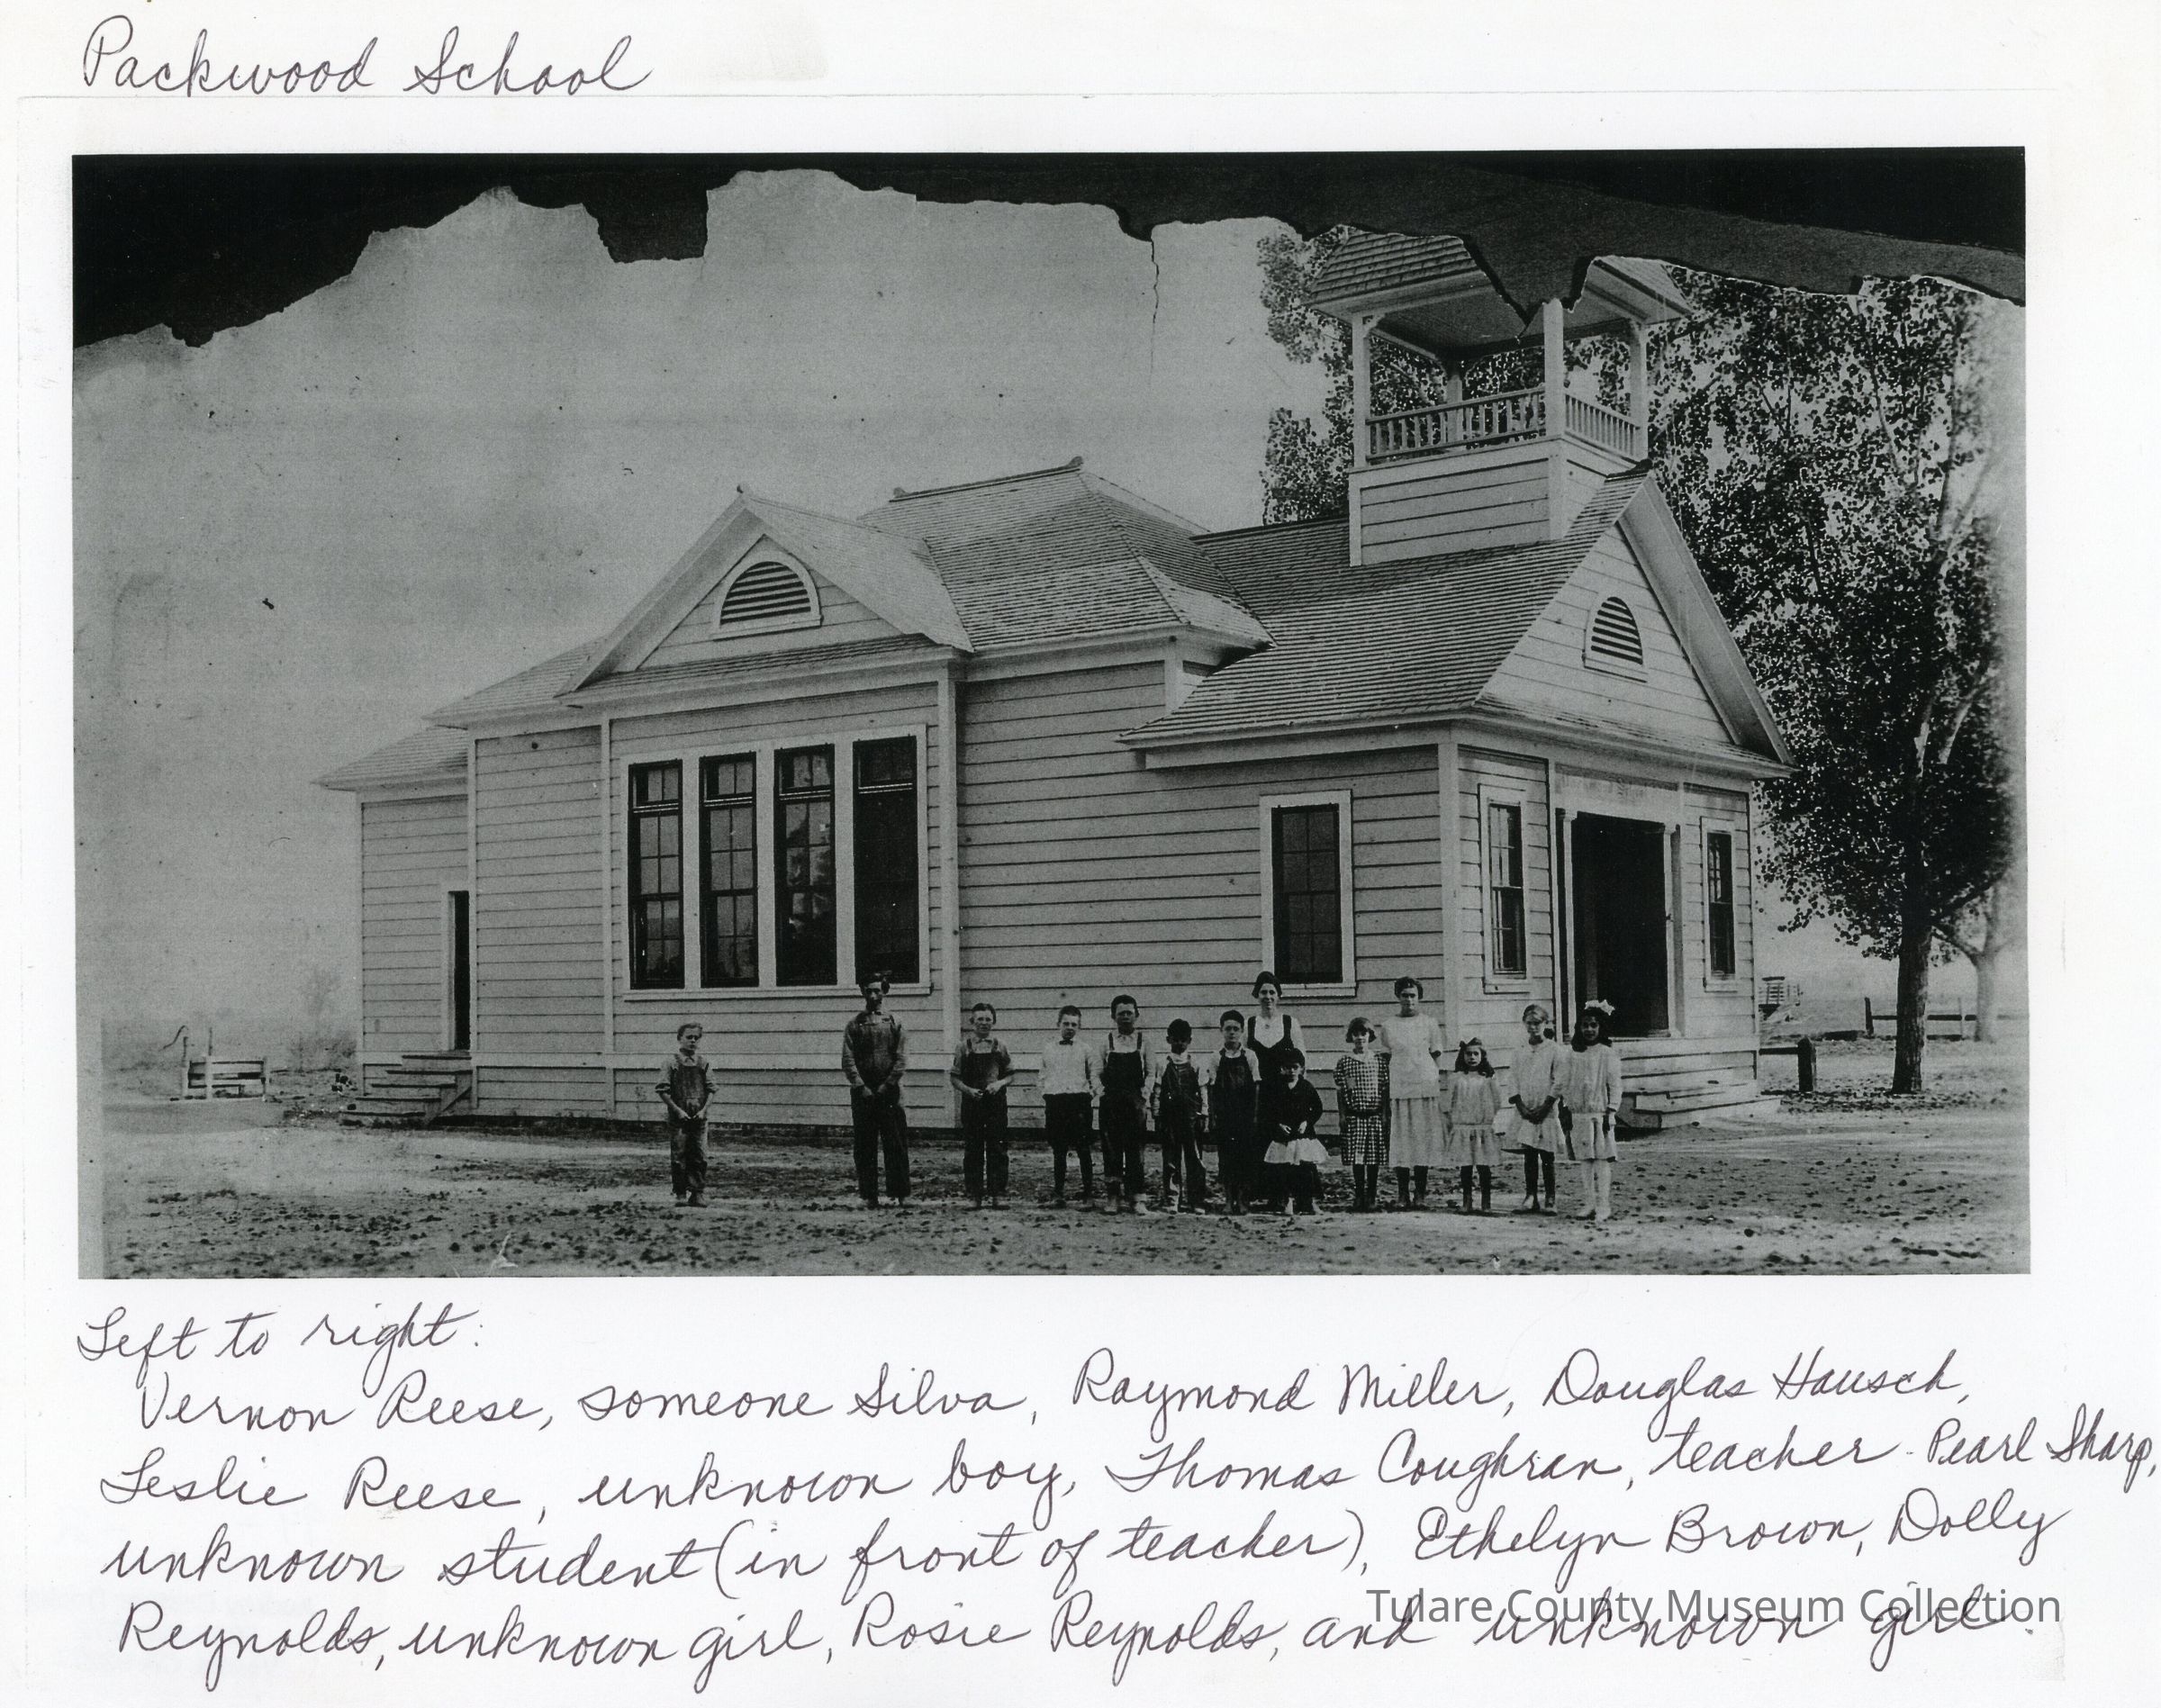 Packwood School
Left to right:
Vernon Reese, someone Silva, Raymond Miller, Douglas Hausch,
Leslie Reese, unknown boy, Thomas Coughran, teacher - Pearl Sharp,
unknown student (in front of teacher), Ethelyn Brown, Dolly
Reynolds, unknown girl, Rosie Reynolds, and unknown girl.
Tulare County Museum Collection